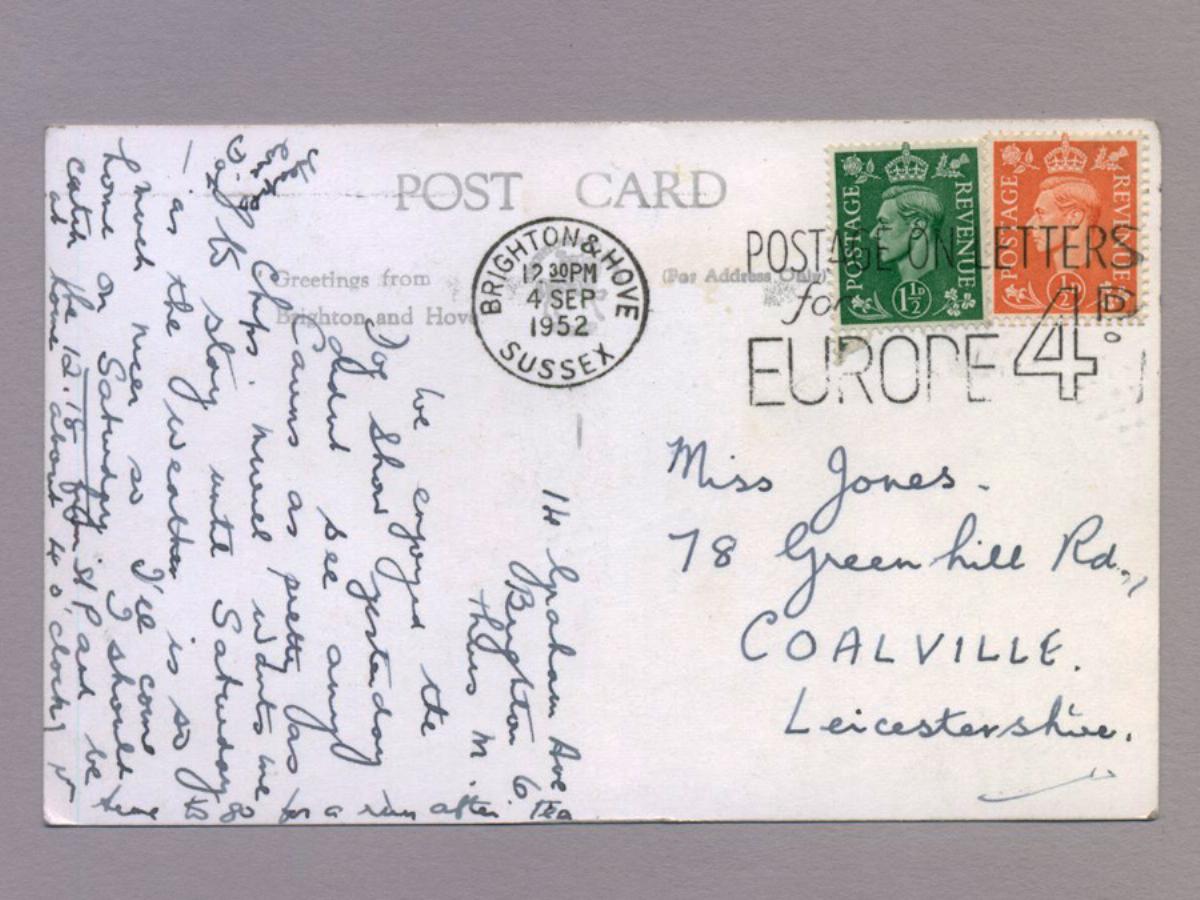 POST CARD
Greetings from
Brighton and Hove
(For Address Only)
BRIGHTON & HOVE
12 30PM
4 SEP
1952
SUSSEX
POSTAGE ON LETTERS
for
EUROPE 4D
POSTAGE REVENUE
1½D
POSTAGE REVENUE
Miss Jones.
78 Greenhill Rd.,
COALVILLE.
Leicestershire.
14 Graham Ave
Brighton 6
Thurs m.
We enjoyed the
Dog Show yesterday
didnt see any
Cairns as pretty as
Chips. Muriel wants me
to stay until Saturday
– as the weather is so
much nicer so I'll come
home on Saturday I should
catch the 12.18 from St Pan be
at home about 4 o'clock &
have time to go for a run after tea